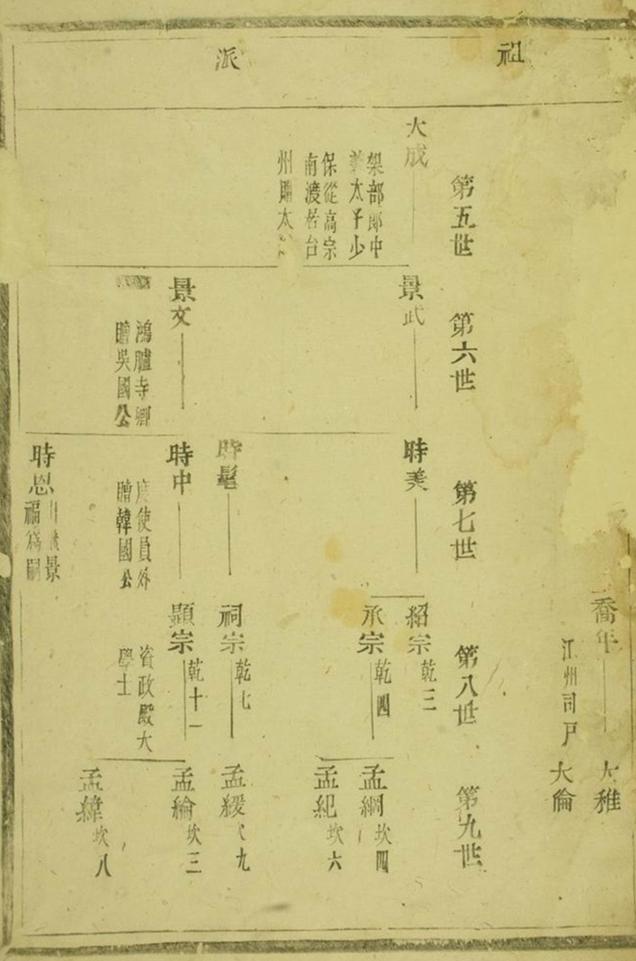 祖
派
喬年
江州司戶
大稚
大倫
第五世
第六世
第七世
第八世
第九世
大成
架部郎中
太子少
保從高宗
南渡居台
州贈太
景武
景文
鴻臚寺卿
贈吳國公
時美
時髦
時中
度使員外
贈韓國公
時恩
景
福為嗣
紹宗
乾三
承宗
乾四
祠宗
乾七
顯宗
乾十一
資政殿大
學士
孟綱
坎四
孟紀
坎六
孟緩
九
孟綸
坎三
孟緯
坎八